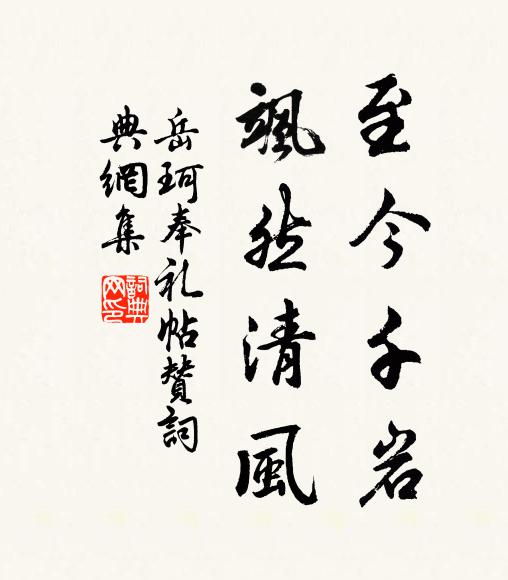 至今千岩
颯然清風
岳珂奉礼帖賛詞
典網集
詞典網印